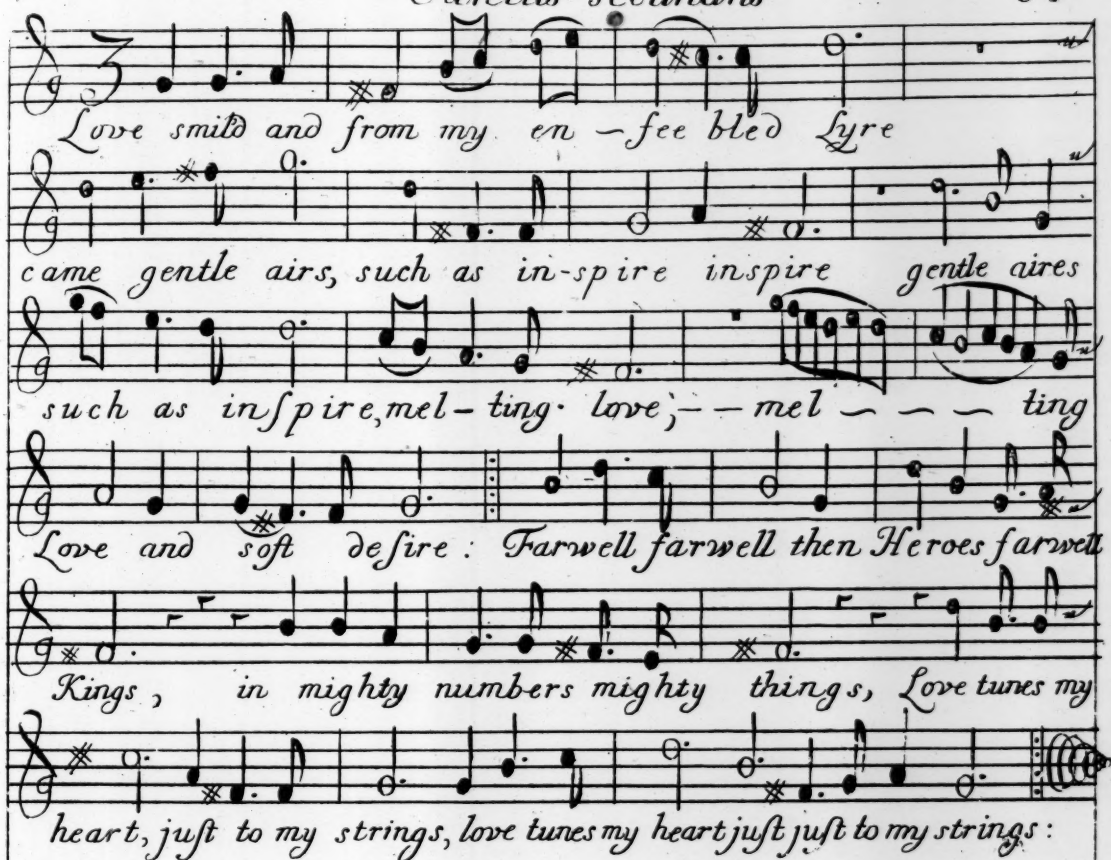 Love smild and from my en - fee bled Lyre
came gentle airs, such as in-spire inspire gentle aires
such as inſpire, mel - ting love; - - mel - - - ting
Love and soft deſire : Farwell farwell then Heroes farwell
Kings, in mighty numbers mighty things, Love tunes my
heart, juſt to my strings, love tunes my heart juſt juſt to my strings: